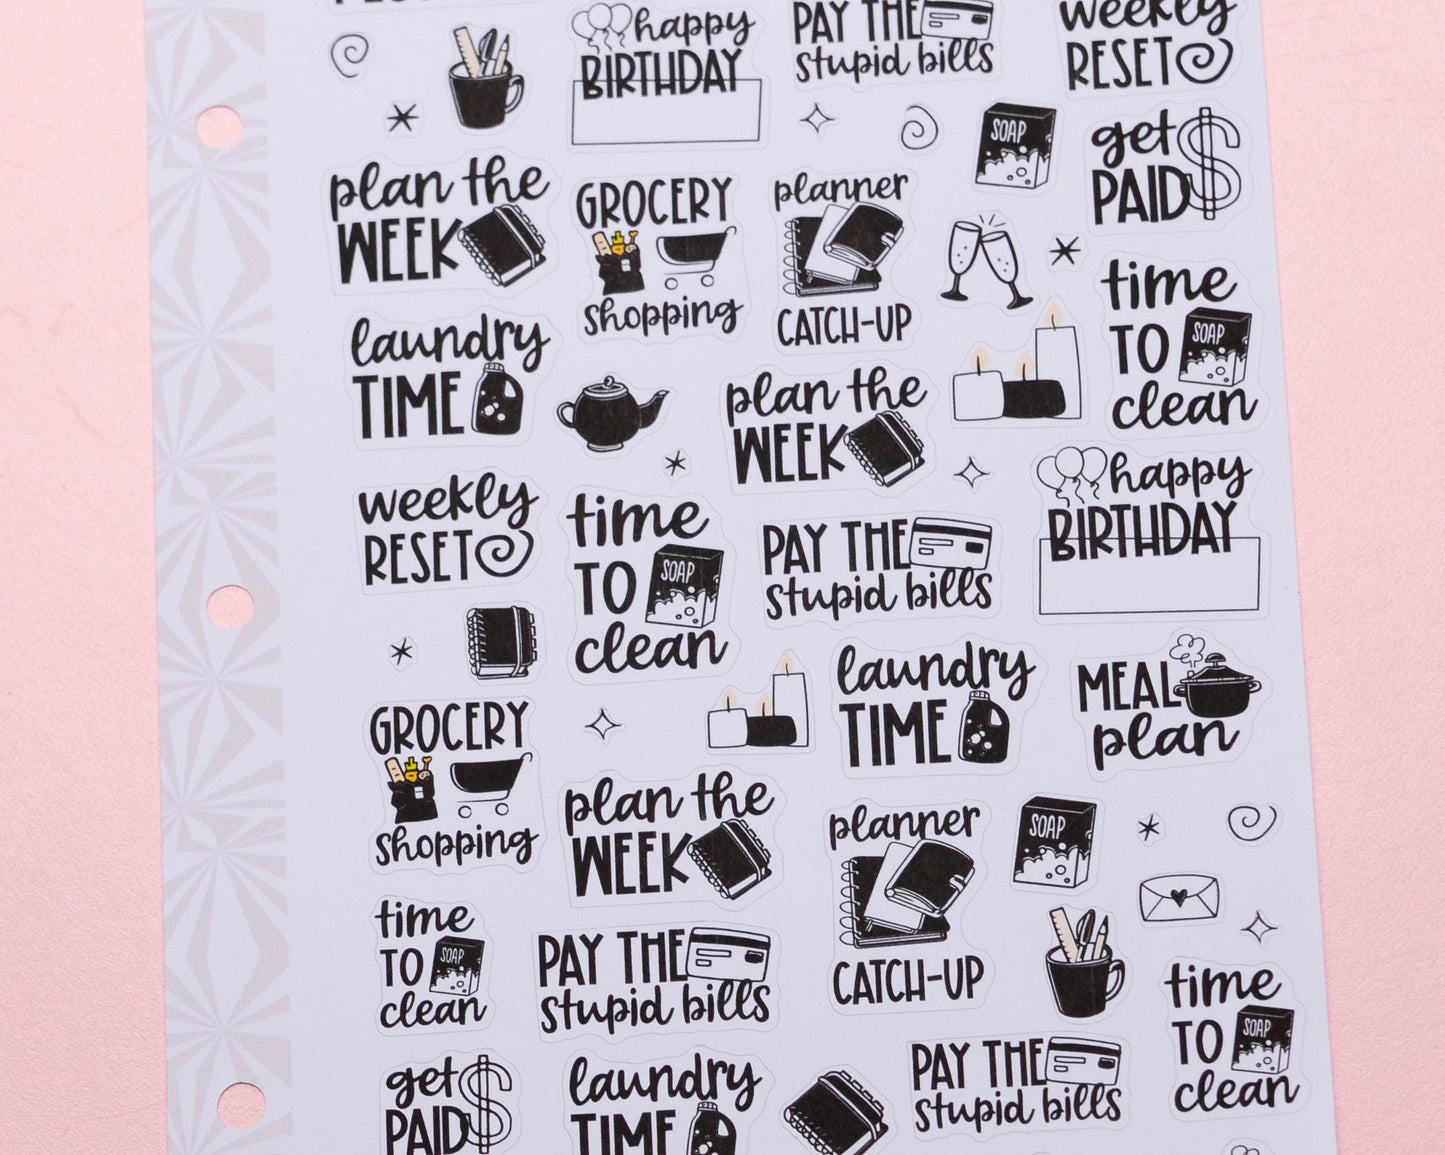 happy
BIRTHDAY
PAY THE
stupid bills
weekly
RESET
SOAP
get
PAID
plan the
WEEK
GROCERY
shopping
planner
CATCH-UP
time
TO
SOAP
clean
laundry
TIME
plan the
WEEK
happy
BIRTHDAY
weekly
RESET
time
TO
SOAP
clean
PAY THE
stupid bills
laundry
TIME
MEAL
plan
GROCERY
shopping
plan the
WEEK
planner
CATCH-UP
SOAP
time
TO
SOAP
clean
PAY THE
stupid bills
time
TO
SOAP
clean
get
PAID
laundry
TIME
PAY THE
stupid bills